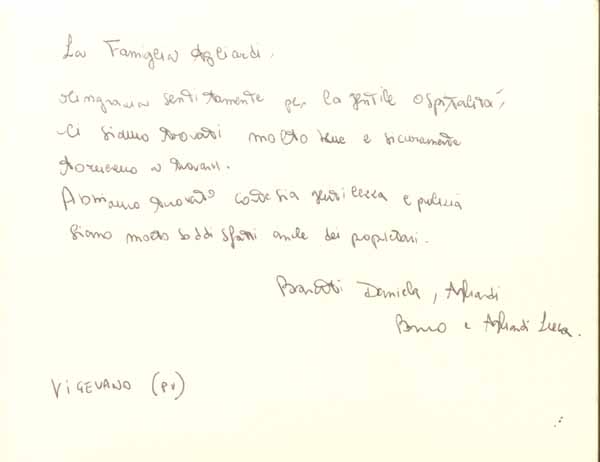 La Famiglia Agliardi,
ringrazia sentitamente per la gentile ospitalità,
Ci siamo trovati molto bene e sicuramente
torneremo a trovarvi.
Abbiamo trovato cortesia gentilezza e pulizia
Siamo molto soddisfatti anche dei proprietari.
Daniela, Agliardi
Bruno e Agliardi Luca.
VIGEVANO (PV)